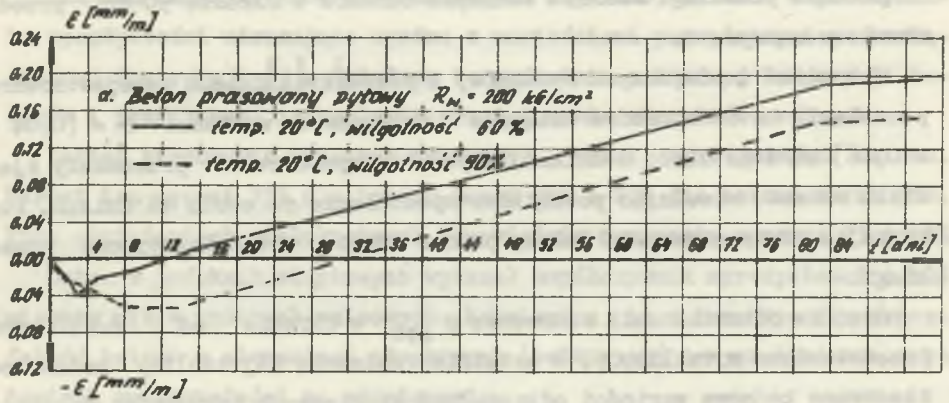 ε [mm/m]
0.24
0.20
0.16
0.12
0.08
0.04
0.00
0.04
0.08
0.12
a. Beton prasowany pyłowy R_w = 200 kG/cm²
temp. 20°C, wilgotność 60%
temp. 20°C, wilgotność 90%
4 8 12 16 20 24 28 32 36 40 44 48 52 56 60 64 68 72 76 80 84 t [dni]
-ε [mm/m]